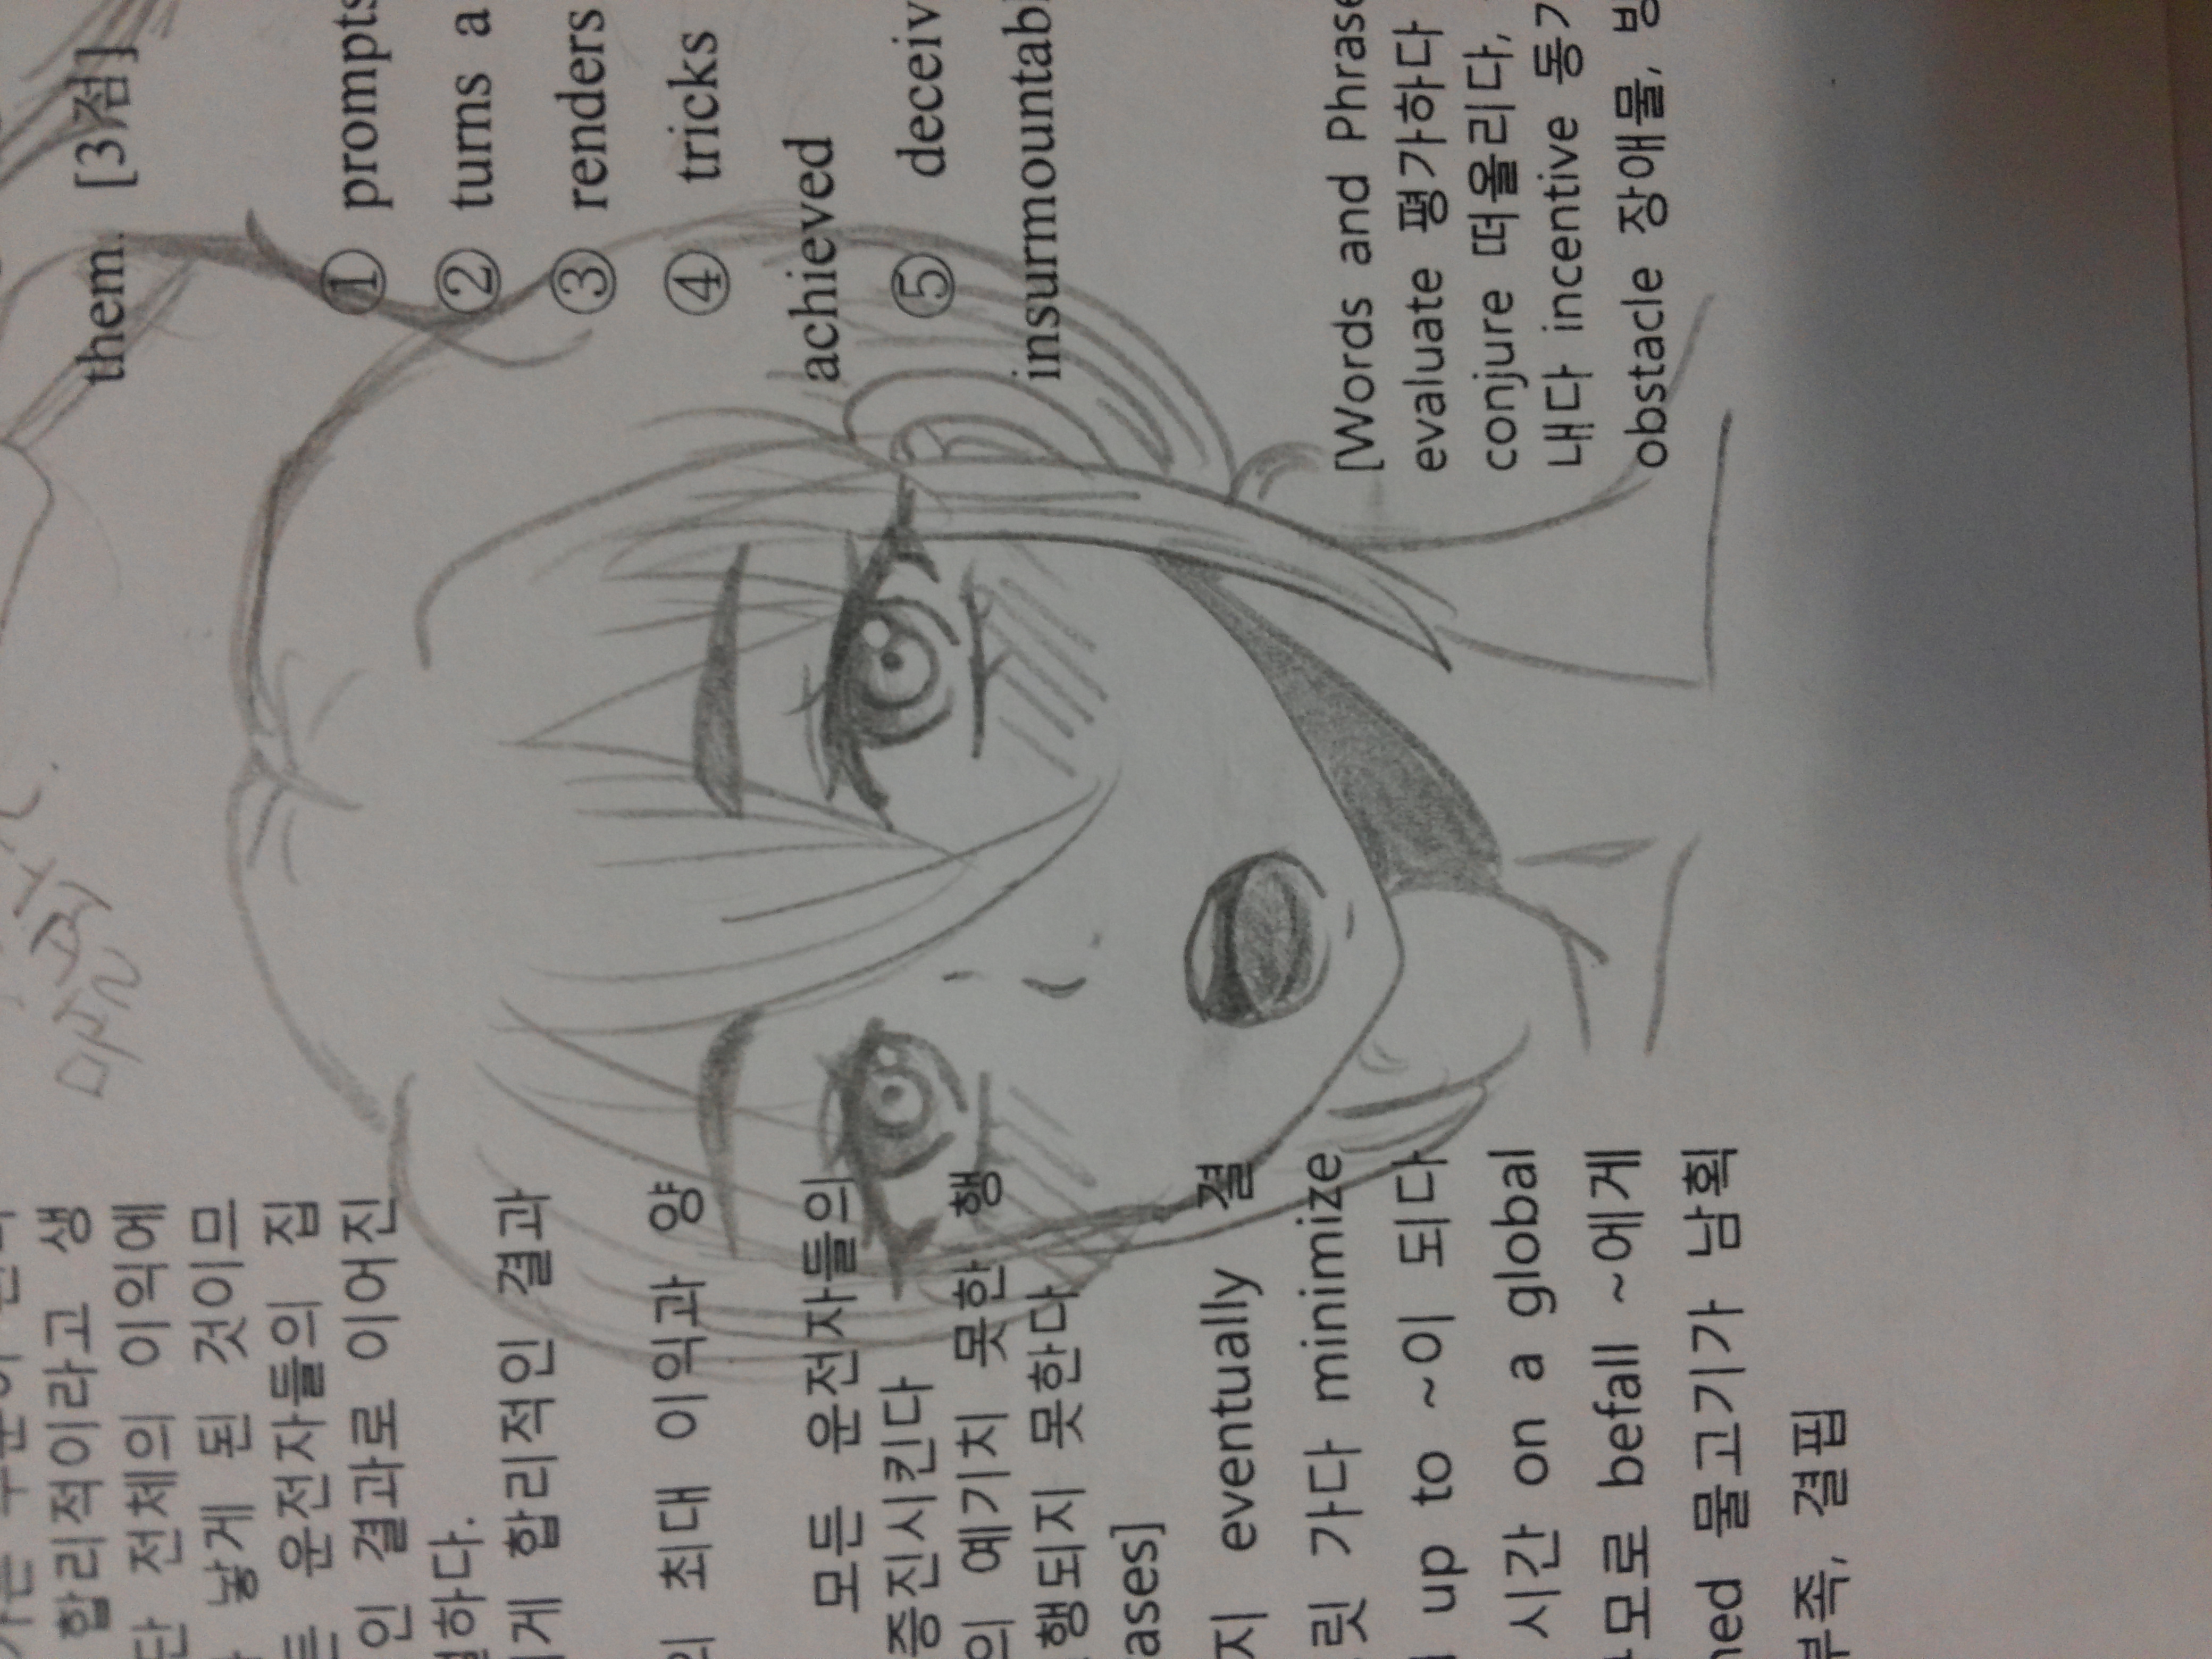 합리적이라고 생
단 전체의 이익에
낳게 된 것이므
운전자들의 집
인 결과로 이어진
하다.
게 합리적인 결과
의 최대 이익과 양
모든 운전자들의
증진시킨다
의 예기치 못한 행
행되지 못한다
ases]
지 eventually 결
릿 가다 minimize
up to ~이 되다
시간 on a global
모로 befall ~에게
ned 물고기가 남획
부족, 결핍
them. [3점]
① prompts
② turns a
③ renders
④ tricks
achieved
⑤ deceiv
insurmountabl
[Words and Phrase
evaluate 평가하다
conjure 떠올리다,
내다 incentive 동
obstacle 장애물, 방